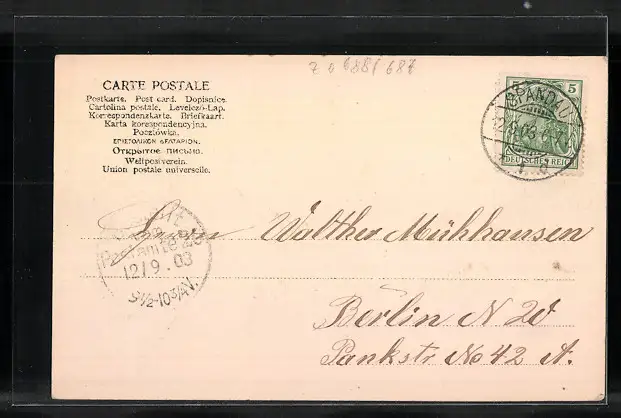 Z 6 688/ 687
CARTE POSTALE
Postkarte. Post card. Dopisnice.
Cartolina postale. Levelező-Lap.
Korrespondenzkarte. Briefkaart.
Karta korespondencyjna.
Pocztówka.
ΕΠΙΣΤΟΛΙΚΟΝ ΔΕΛΤΑΡΙΟΝ.
Открытое письмо.
Weltpostverein.
Union postale universelle.
5 5
DEUTSCHES REICH
SPANDAU
12/9.03
8½-10¾V.
Herrn Walther Mühlhausen
Berlin N 20
Pankstr No 42 A.